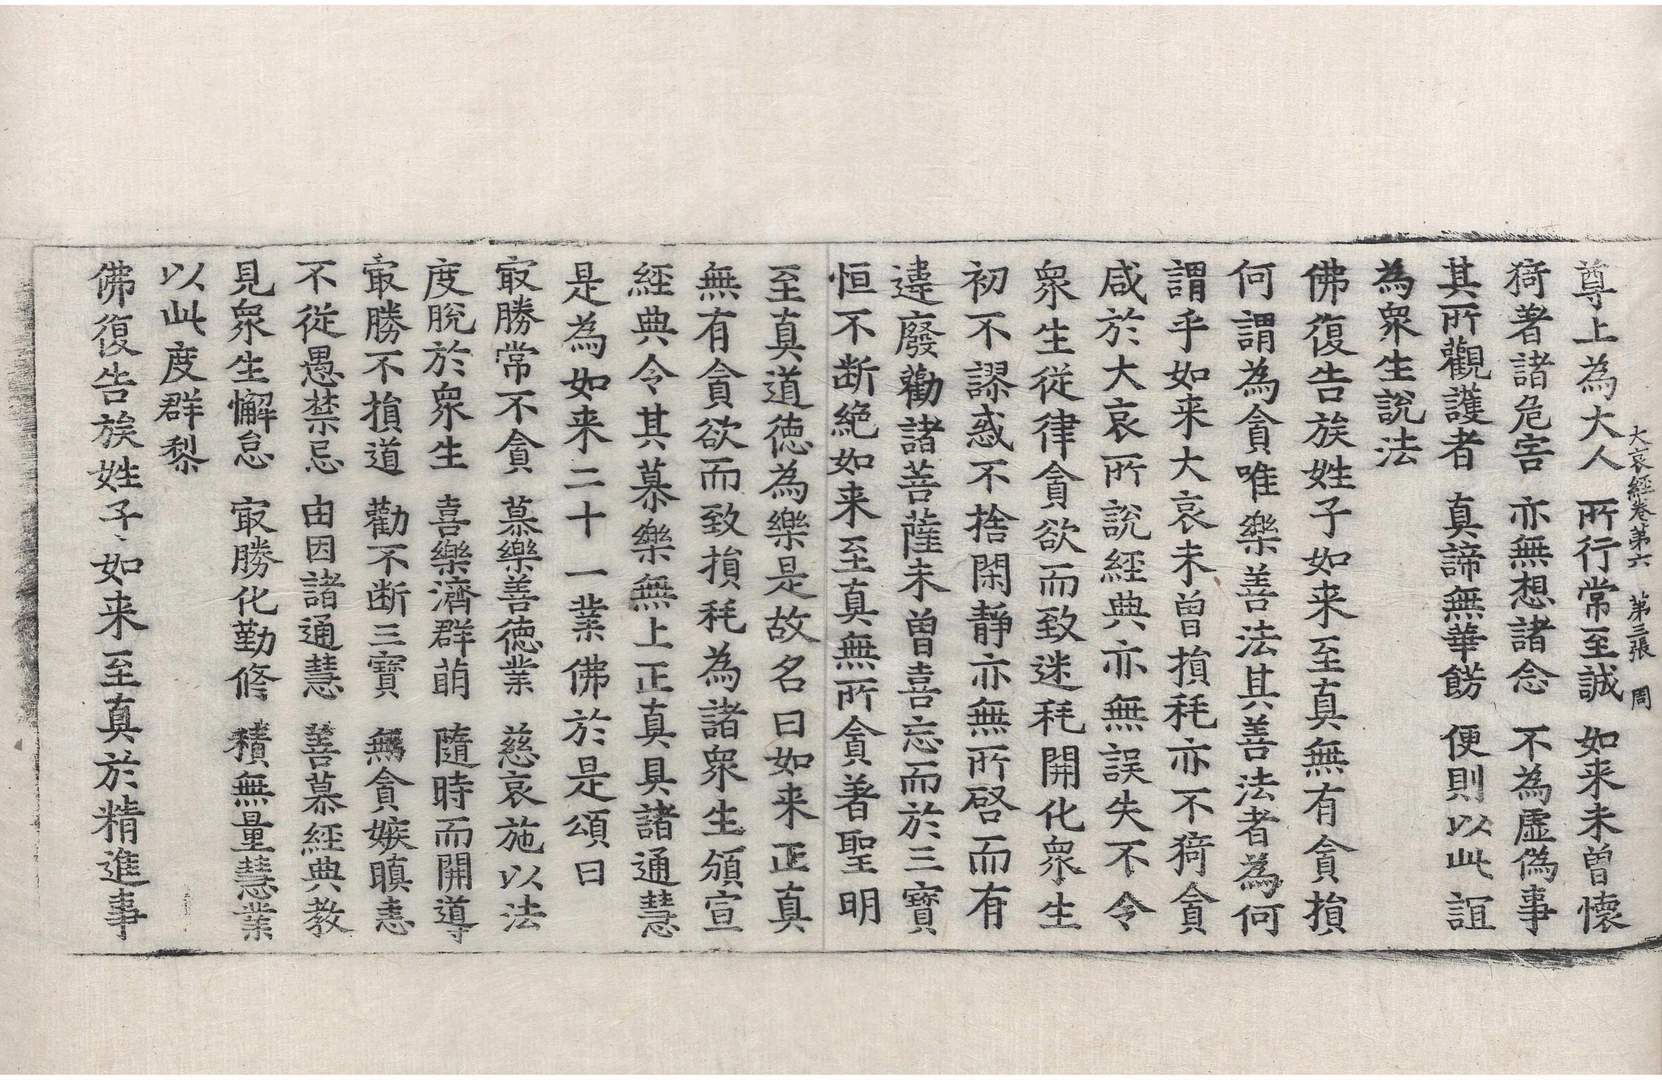 大哀經卷第六　第三張　周
尊上為大人　所行常至誠　如来未曾懷
猗著諸危害　亦無想諸念　不為虛偽事
其所觀護者　真諦無華餝　便則以此誼
為衆生說法
佛復告族姓子如来至真無有貪損
何謂為貪唯樂善法其善法者為何
謂乎如来大哀未曾損秏亦不猗貪
咸於大哀所說經典亦無誤失不令
衆生従律貪欲而致迷秏開化衆生
初不謬惑不捨閑靜亦無所啓而有
違廢勸諸菩薩未曾喜忘而於三寶
恒不断絕如来至真無所貪著聖明
至真道徳為樂是故名曰如来正真
無有貪欲而致損秏為諸衆生頒宣
經典令其慕樂無上正真具諸通慧
是為如来二十一業佛於是頌曰
㝡勝常不貪　慕樂善徳業　慈哀施以法
度脫於衆生　喜樂濟群萠　隨時而開導
㝡勝不損道　勸不断三寶　無貪嫉瞋恚
不従愚禁忌　由因諸通慧　善慕經典教
見衆生懈怠　㝡勝化勤修　積無量慧業
以此度群黎
佛復告族姓子如来至真於精進事